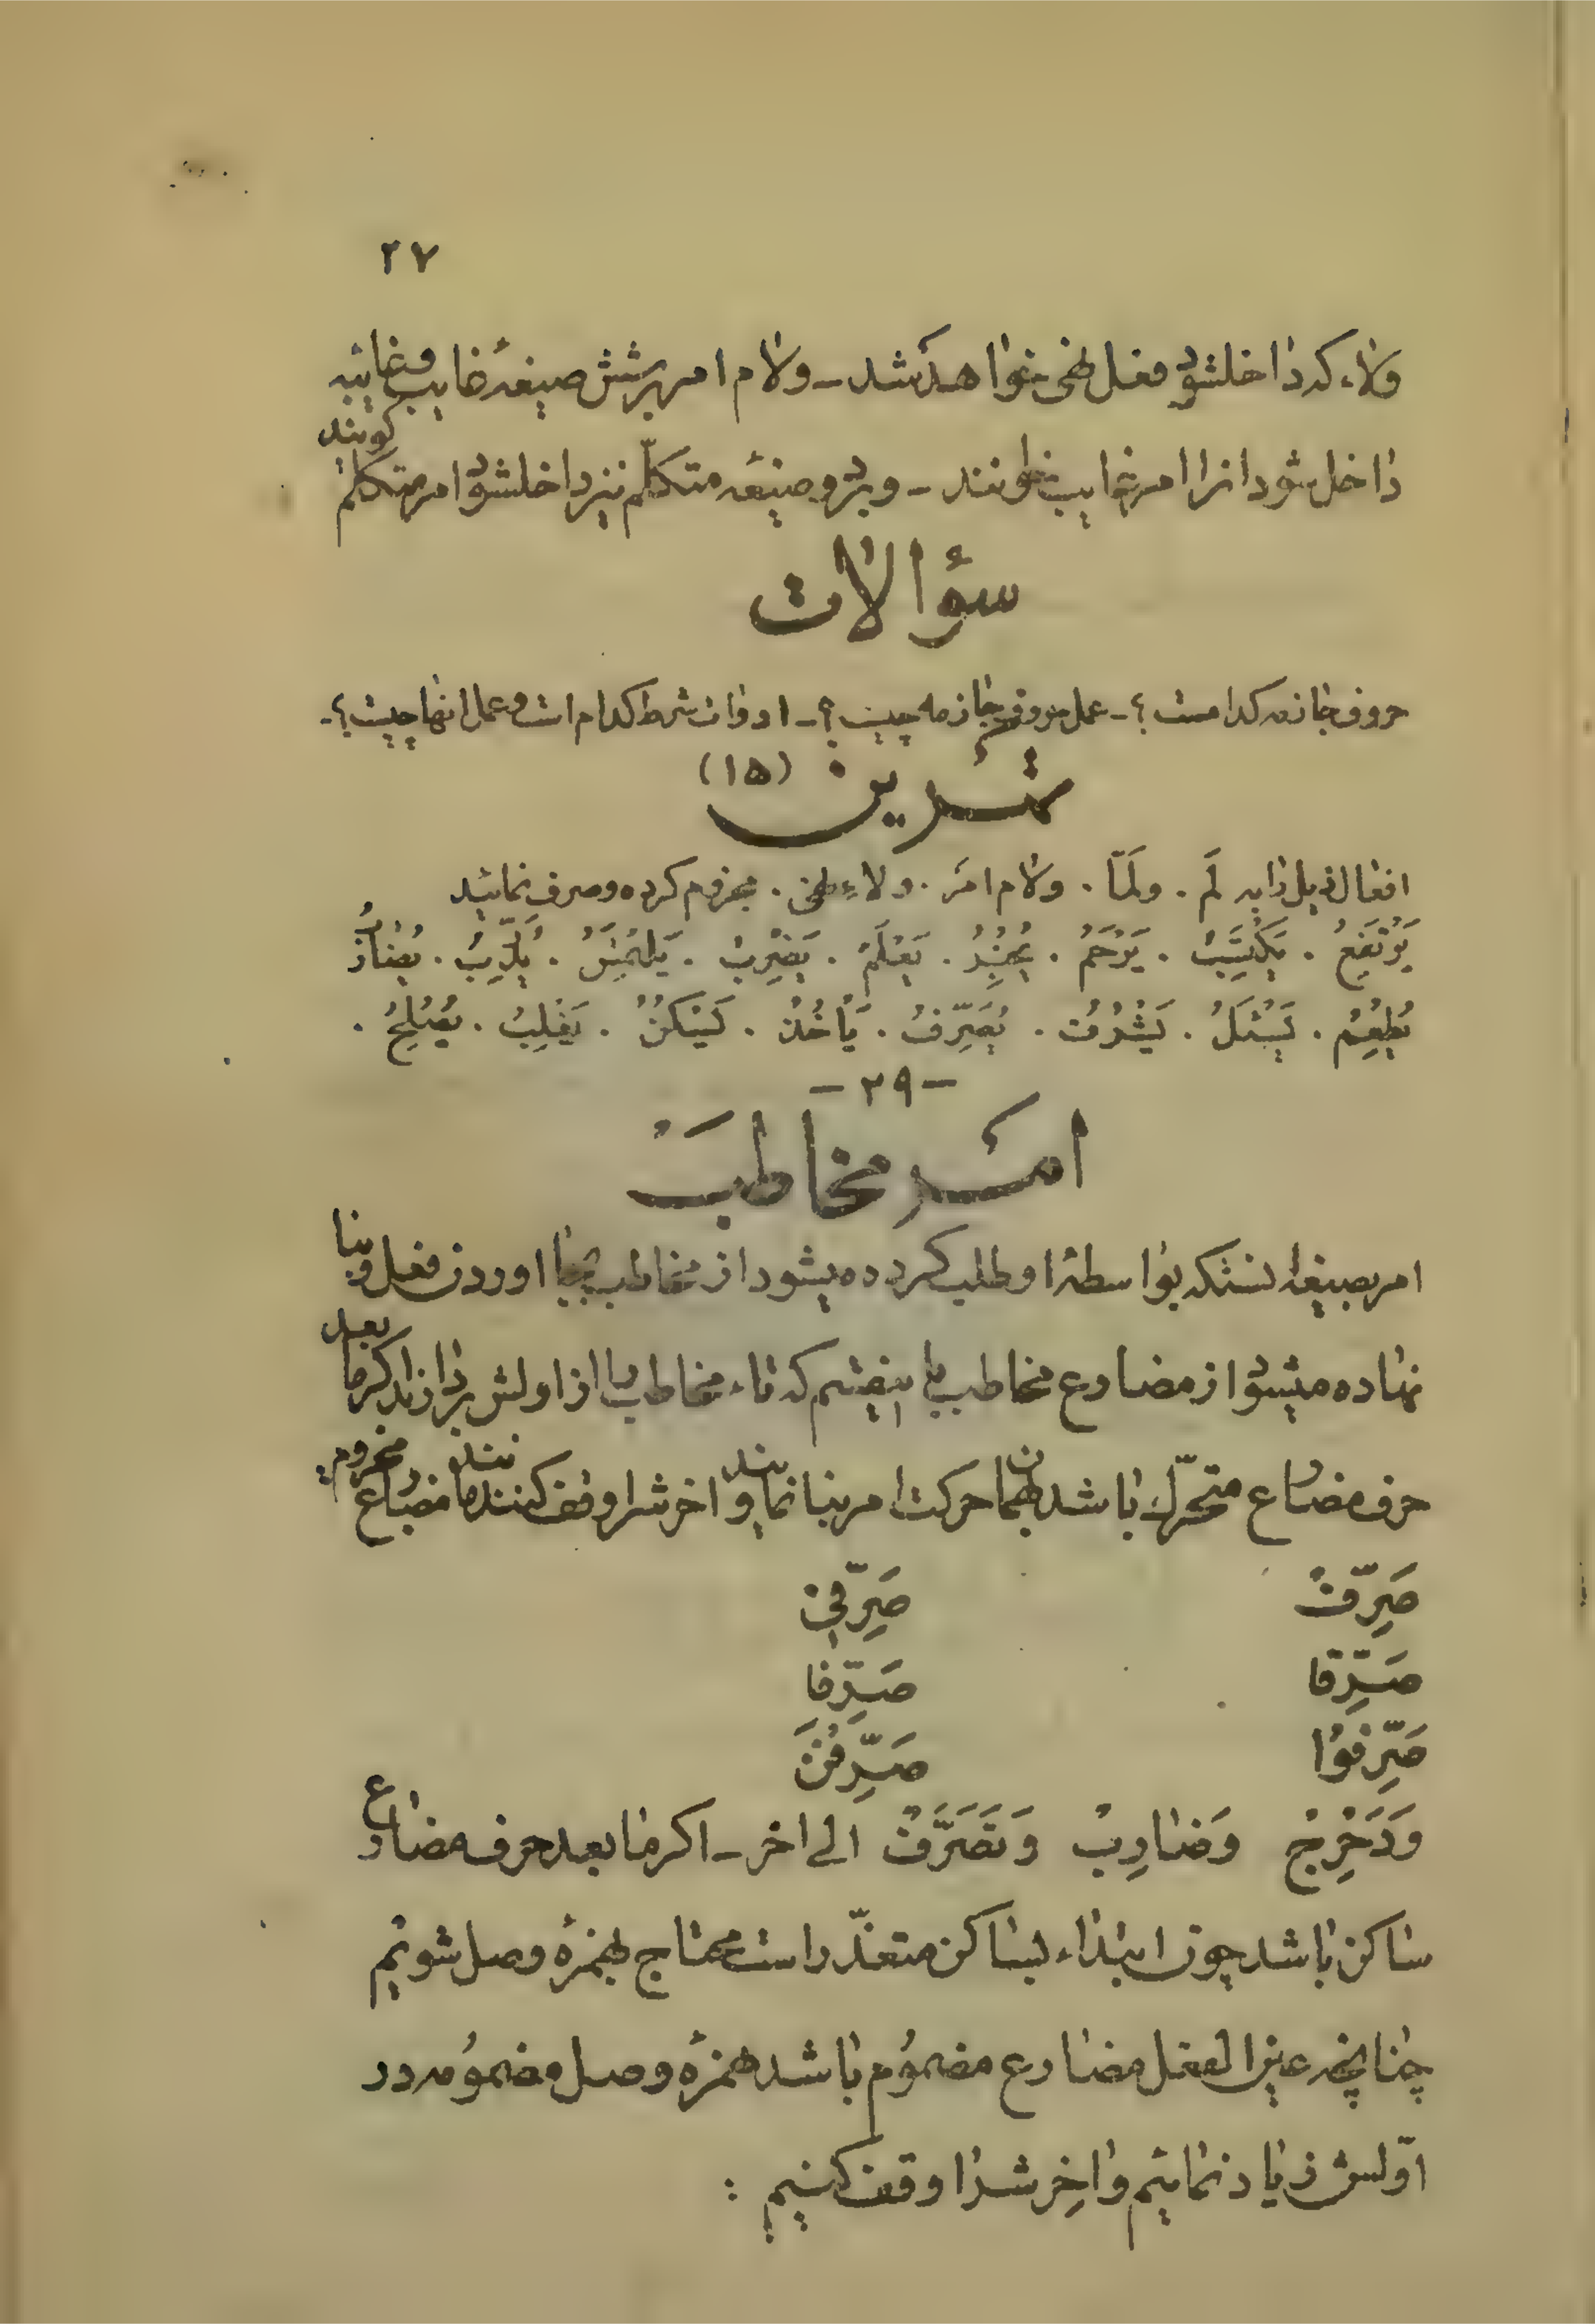 ۲۷
ولاء که داخلشود فعل نهی خواهد شد ـ ولام امر برشش صیغهٔ غایب و غایبه
داخل شود انرا امر غایب گویند ـ و بر دو صیغه متکلّم نیز داخلشود امر متکلم گویند
سؤالات
حروف جازمه کدامست ؟ ـ عمل حروف جازمه چیست ؟ ـ ادوات شرط کدام است و عمل انها چیست ؟ ـ
تمرین (۱۵)
افعال ذیل را به لَم . ولَمّا . ولام امر . ولاءِ نهی . مجزوم کرده و صرف نمائید
یَرْتَفِعُ . یَکْتَسِبُ . یَرْحَمُ . یَعْلَمُ . یَضْرِبُ . یَلْتَمِسُ .
یُطْعِمُ . یُصَرِّفُ . یَأْخُذُ . یَسْکُنُ . یَغْلِبُ . یُصْلِحُ .
ـ ۲۹ ـ
امر مخاطب
امر صیغه ایستکه بواسطهٔ او طلب کرده میشود از مخاطب بجا اوردن فعل و بنا
نهاده میشود از مضارع مخاطب باینقسم که تاء مخاطب را از اولش بردارند اگر ما بعد
حرف مضارع متحرّک باشد بهمان حرکت امر بنا نمایند و اخرش را وقف کنند مانند مضارع مجزوم
صَرِّفْ صَرِّفِی
صَرِّفا صَرِّفا
صَرِّفُوا صَرِّفْنَ
وَدَحْرِجْ وَضارِبْ وَتَصَرَّفْ الی اخر ـ اگر ما بعد حرف مضارع
ساکن باشد چون ابتداء بساکن متعذّر است محتاج بهمزهٔ وصل شویم
چنانچه عین الفعل مضارع مضمُوم باشد همزهٔ وصل مضمُومه در
اوّلش زیاد نمائیم واخِرش را وقف کنیم :